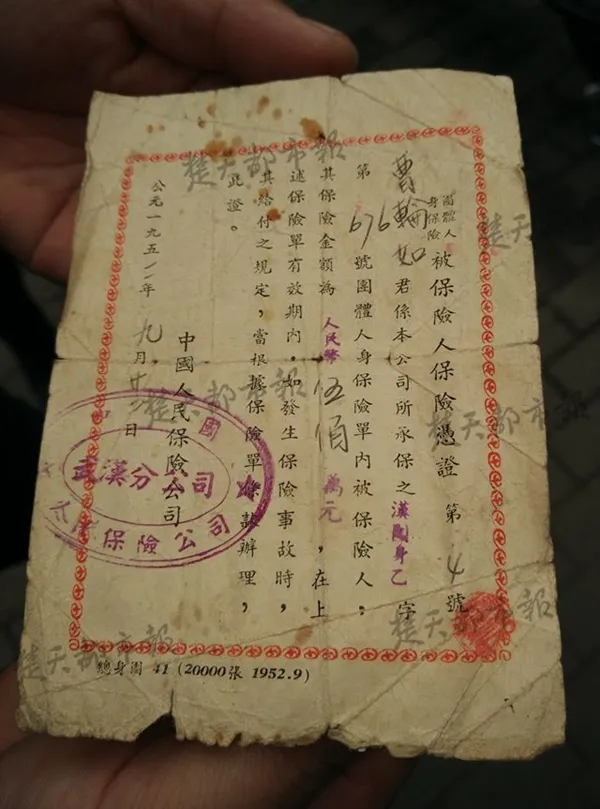 團體人身保險 被保險人保險憑證 第 4 號
曹輪如 君係本公司所承保之漢團身乙字
第 676 號團體人身保險單內被保險人；
其保險金額為人民幣伍佰萬元，在上
述保險單有效期內，如發生保險事故時，
其給付之規定，當根據保險單條款辦理，
此證。
中國人民保險公司
公元一九五二年 九月 日
國 保險公司
武漢分公司
總身團 41 (20000張 1952.9)
楚天都市報
楚天都市報
楚天都市報
楚天都市報
楚天都市報
楚天都市報